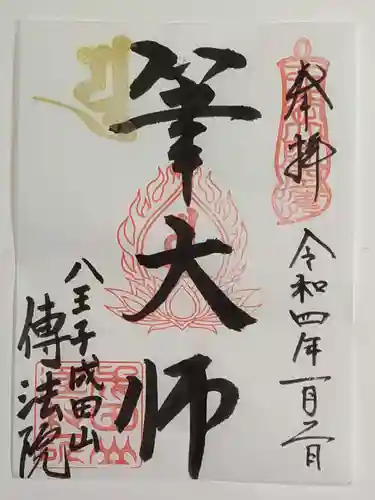 奉拝
令和四年一月二日
筆大師
八王子成田山
傳法院